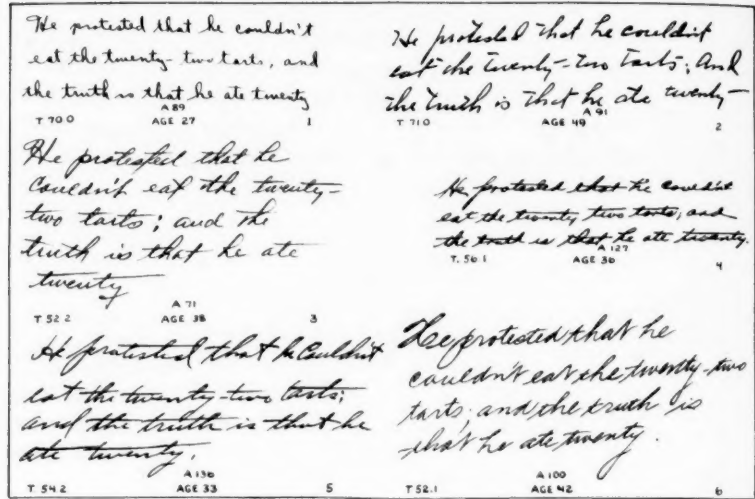 He protested that he couldn't
eat the twenty-two tarts, and
the truth is that he ate twenty
A 89
T 70.0 AGE 27 1
He protested that he couldn't
eat the twenty-two tarts; and
the truth is that he ate twenty-
A 91
T 71.0 AGE 49 2
He protested that he
couldn't eat the twenty-
two tarts; and the
truth is that he ate
twenty
A 71
T 52.2 AGE 38 3
He protested that he couldn't
eat the twenty two tarts; and
the truth is that he ate twenty.
A 127
T. 56.1 AGE 36 4
He protested that he couldn't
eat the twenty-two tarts;
and the truth is that he
ate twenty.
A 136
T 54.2 AGE 33 5
He protested that he
couldn't eat the twenty-two
tarts; and the truth is
that he ate twenty.
A 100
T 52.1 AGE 42 6